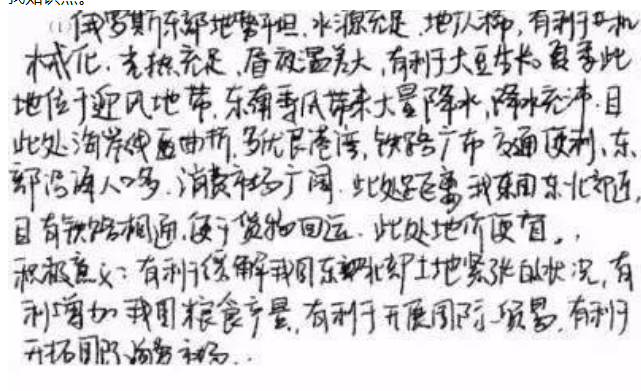 找知识点。
(1)俄罗斯东部地势平坦,水源充足,地广人稀,有利于机
械化,光热充足,昼夜温差大,有利于大豆生长。夏季此
地位于迎风地带,东南季风带来大量降水,降水充沛。且
此处海岸线曲折,多优良港湾,铁路广布,交通便利,东
部沿海人口多,消费市场广阔,此处距离我国东北部近,
且有铁路相通,便于货物回运。此处地价便宜。
积极意义:有利于缓解我国东北部土地紧张的状况,有
利增加我国粮食产量,有利于开展国际贸易,有利于
开拓国际消费市场..